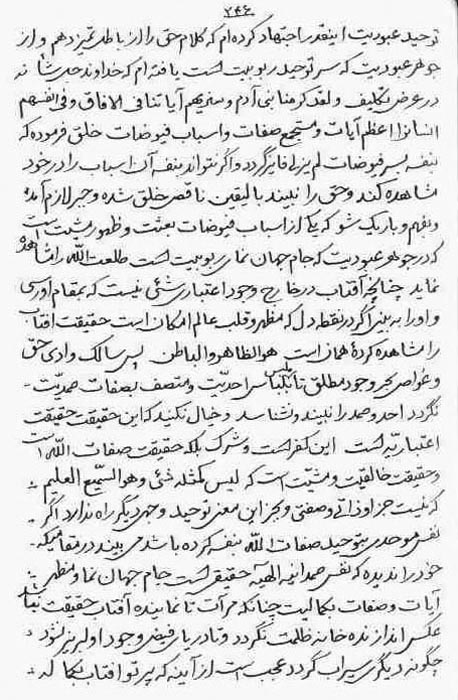 ۲۴۶
توحید عبودیت اینقدر اجتهاد کرده ام که کلام حق را از باطل تمیز دهم و از
جوهر عبودیت که سر توحید ربوبیت است یافته ام که خداوند جل شانه
در عرض تکلیف و لقد کرمنا بنی آدم و سنریهم آیاتنا فی الافاق و فی انفسهم
انسانرا اعظم آیات و مستجمع صفات و اسباب فیوضات خلق فرموده که
بنفسه بسر فیوضات لم یزلی فایز گردد و اگر نتواند بنفسه آن اسباب را در خود
مشاهده کند و حق را نبیند بالیقین ناقص خلق شده و جبر لازم آمده
و بفهم و باریک شو که یکی از اسباب فیوضات بعثت و ظهور مشیت است
که در جوهر عبودیت که جام جهان نمای ربوبیت است طلعت الله را مشاهده
نماید چنانچه آفتاب در خارج وجود اعتبار شئی نیست که بمقام او رسی
و او را به بینی اگر در نقطه دل که مظهر و قلب عالم امکان است حقیقت آفتاب
را مشاهده کردهٔ همان است هو الظاهر و الباطن پس سالک وادی حق
و غواص بحر وجود مطلق تا بلباس احدیت متلبس و متصف بصفات صمدیت
نگردد احد و صمد را نبیند و نشناسد و خیال نکنید که این حقیقت حقیقت
اعتباریه است این کفر است و شرک بلکه حقیقت صفات الله است
و حقیقت خالقیت و مشیت است که لیس کمثله شئ و هو السمیع العلیم
که نیست جز او ذاتی و صفتی و بجز این معنی توحید وجهی دیگر راه ندارد اگر
نفس موحدی بتوحید صفات الله بنفسه کرده باشد می بیند در مقامیکه
خود را ندیده که نفس صمدانیه الهیه حقیقی است جام جهان نما و مظهر
آیات و صفات بکمالیت چنانکه مرآت تا نماینده آفتاب حقیقت نباشد
عکس انداز نده خانه ظلمت نگردد و تا دریای فیض وجود او لبریز نشود
چگونه دیگری سیراب گردد عجب است از آینه که پرتو آفتاب بکماله